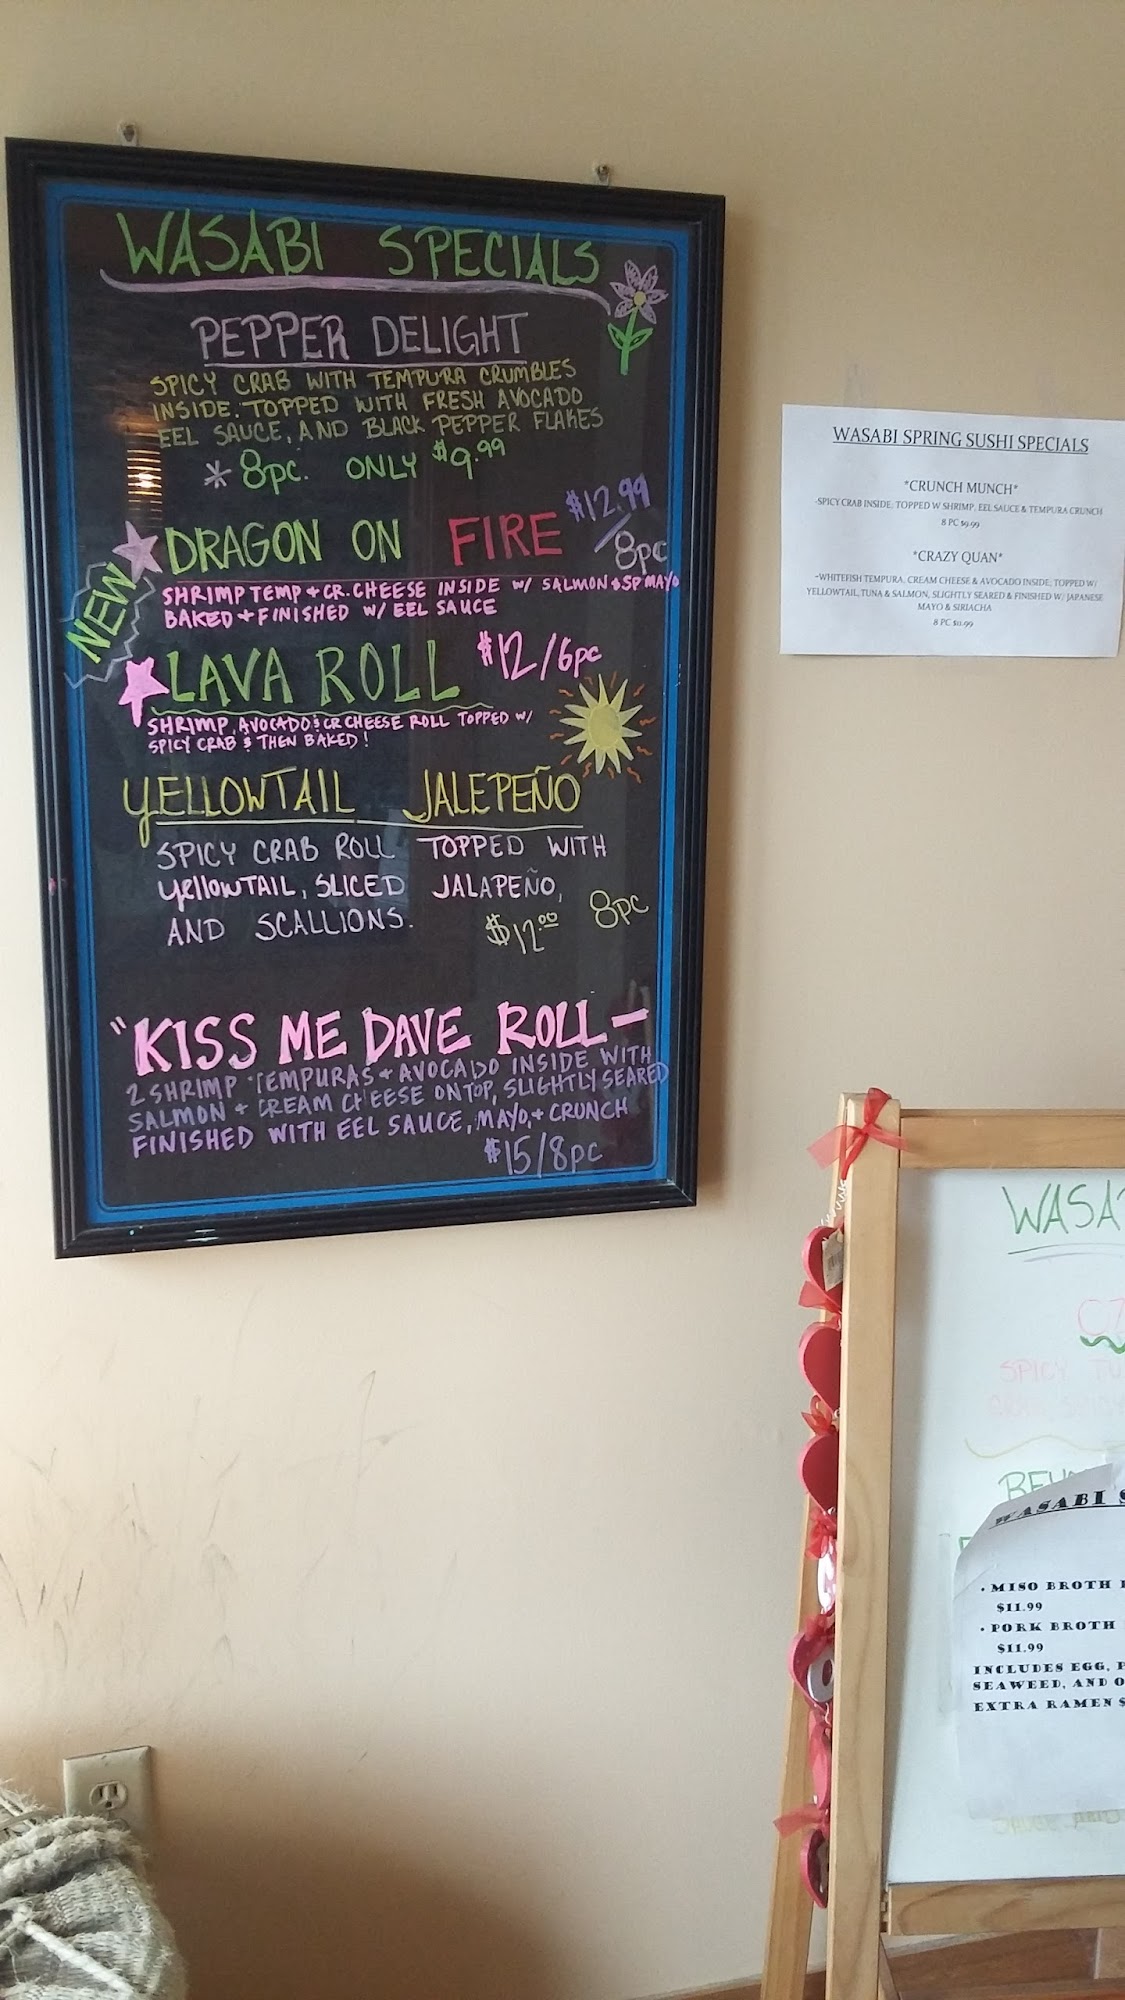 WASABI SPECIALS
PEPPER DELIGHT
SPICY CRAB WITH TEMPURA CRUMBLES
INSIDE. TOPPED WITH FRESH AVOCADO
EEL SAUCE, AND BLACK PEPPER FLAKES
* 8pc. ONLY $9.99
NEW
DRAGON ON FIRE $12.99/8pc
SHRIMP TEMP + CR. CHEESE INSIDE W/ SALMON & SP MAYO
BAKED + FINISHED W/ EEL SAUCE
LAVA ROLL $12/6pc
SHRIMP, AVOCADO & CR CHEESE ROLL TOPPED W/
SPICY CRAB & THEN BAKED!
YELLOWTAIL JALEPEÑO
SPICY CRAB ROLL TOPPED WITH
YELLOWTAIL, SLICED JALAPEÑO,
AND SCALLIONS. $12.00 8pc
"KISS ME DAVE ROLL-
2 SHRIMP TEMPURAS + AVOCADO INSIDE WITH
SALMON + CREAM CHEESE ON TOP, SLIGHTLY SEARED
FINISHED WITH EEL SAUCE, MAYO, + CRUNCH
$15/8pc
WASABI SPRING SUSHI SPECIALS
*CRUNCH MUNCH*
-SPICY CRAB INSIDE; TOPPED W SHRIMP, EEL SAUCE & TEMPURA CRUNCH
8 PC $9.99
*CRAZY QUAN*
-WHITEFISH TEMPURA, CREAM CHEESE & AVOCADO INSIDE; TOPPED W/
YELLOWTAIL, TUNA & SALMON, SLIGHTLY SEARED & FINISHED W/ JAPANESE
MAYO & SIRIACHA
8 PC $11.99
WASA
SPICY TU
WASABI S
• MISO BROTH
$11.99
• PORK BROTH
$11.99
INCLUDES EGG, P
SEAWEED, AND O
EXTRA RAMEN $